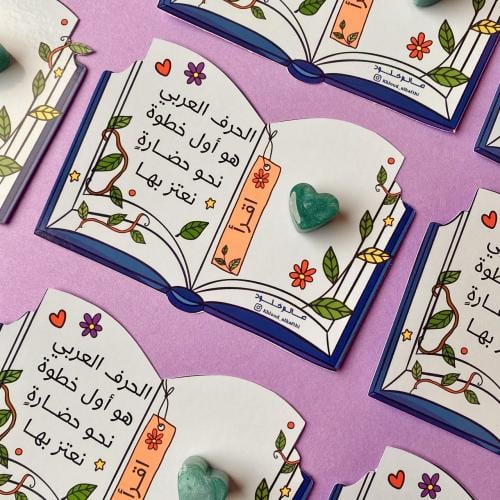 الحرف العربي
هو أول خطوة
نحو حضارةٍ
نعتز بها
اقرأ
عالم خلود
khloud_albathi
الحرف العربي
هو أول خطوة
نحو حضارةٍ
نعتز بها
اقرأ